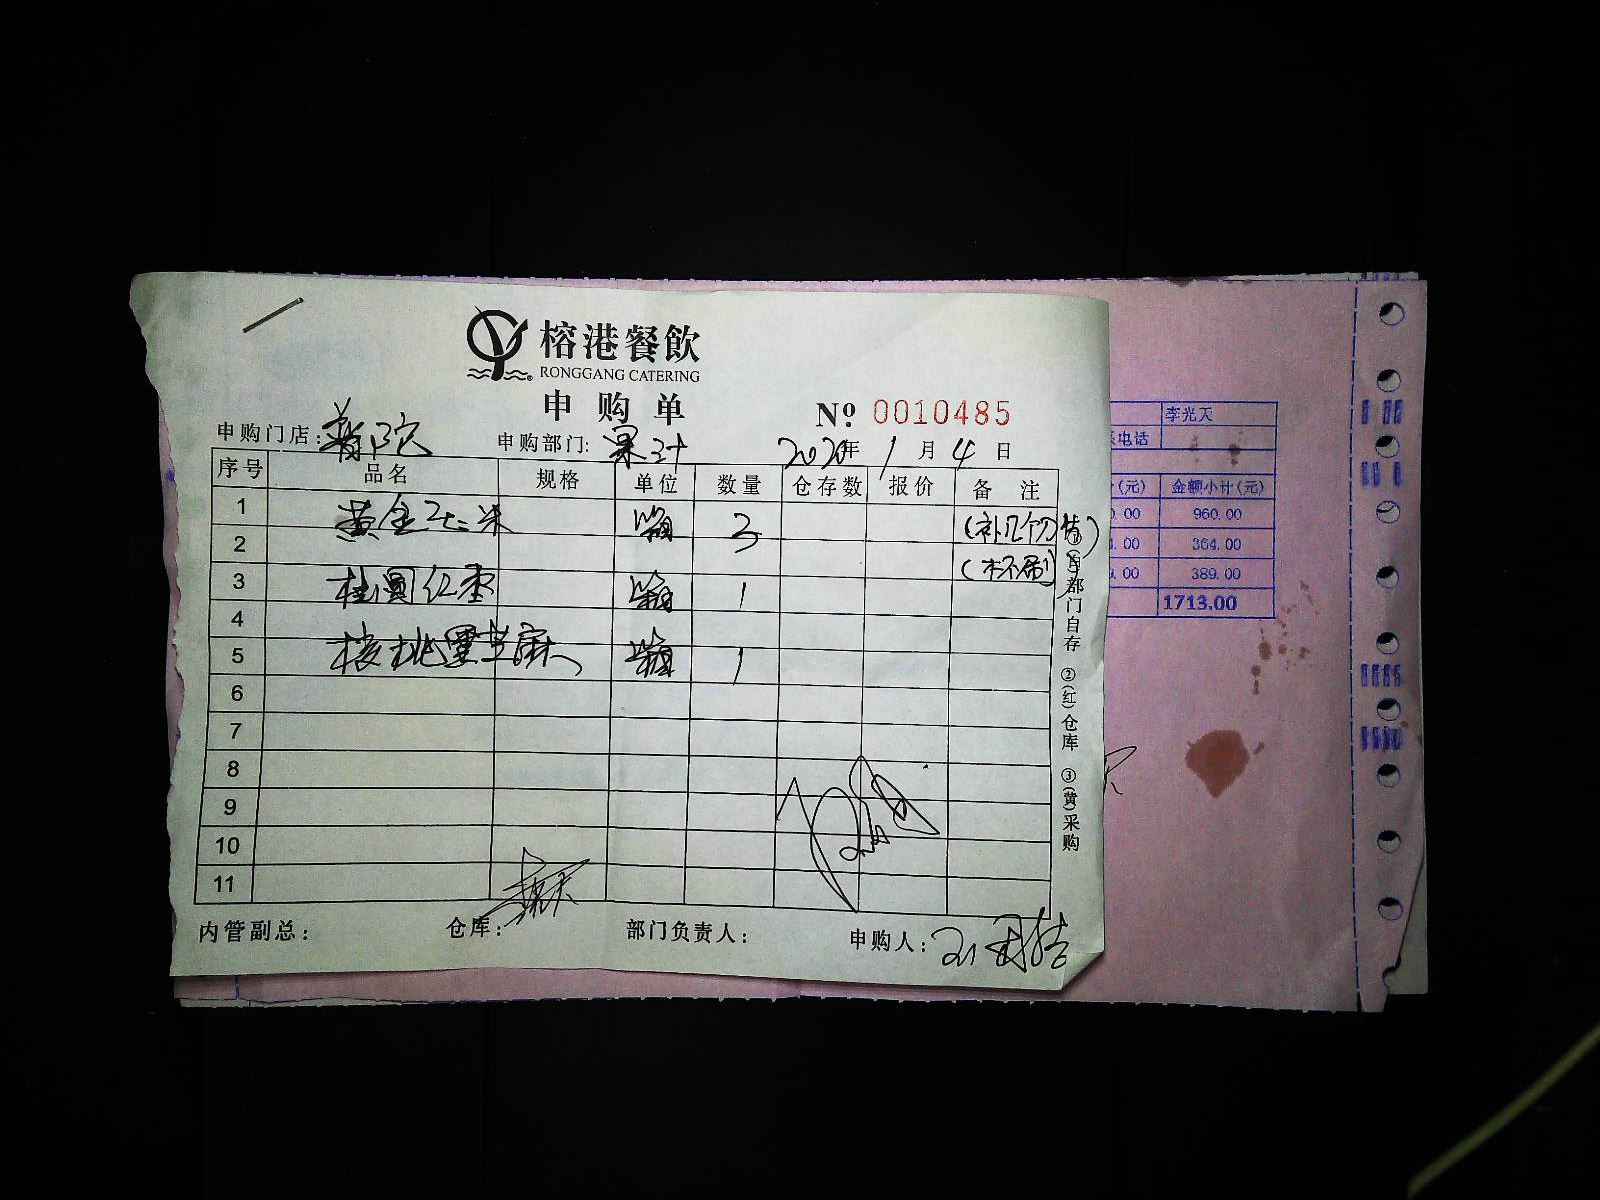 榕港餐飲
RONGGANG CATERING
申购单
№ 0010485
申购门店：普陀 申购部门：果汁 2020年1月4日
序号 品名 规格 单位 数量 仓存数 报价 备注
1 黄金玉米 箱 3
2
3 桂圆红枣 箱 1
4
5 核桃黑芝麻 箱 1
6
7
8
9
10
11
内管副总： 仓库： 部门负责人： 申购人：
部门自存 ②(红)仓库 ③(黄)采购
李光天
电话
(元) 金额小计(元)
.00 960.00
.00 364.00
.00 389.00
1713.00